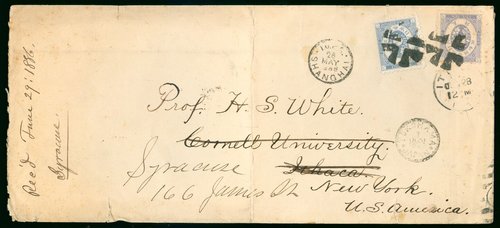 Rec'd June 29: 1886.
Syracuse
28
MAY
SHANGHAI
28
12 M
Prof. H. S. White.
Cornell University.
Ithaca.
Syracuse
166 James St New York.
U.S. America.